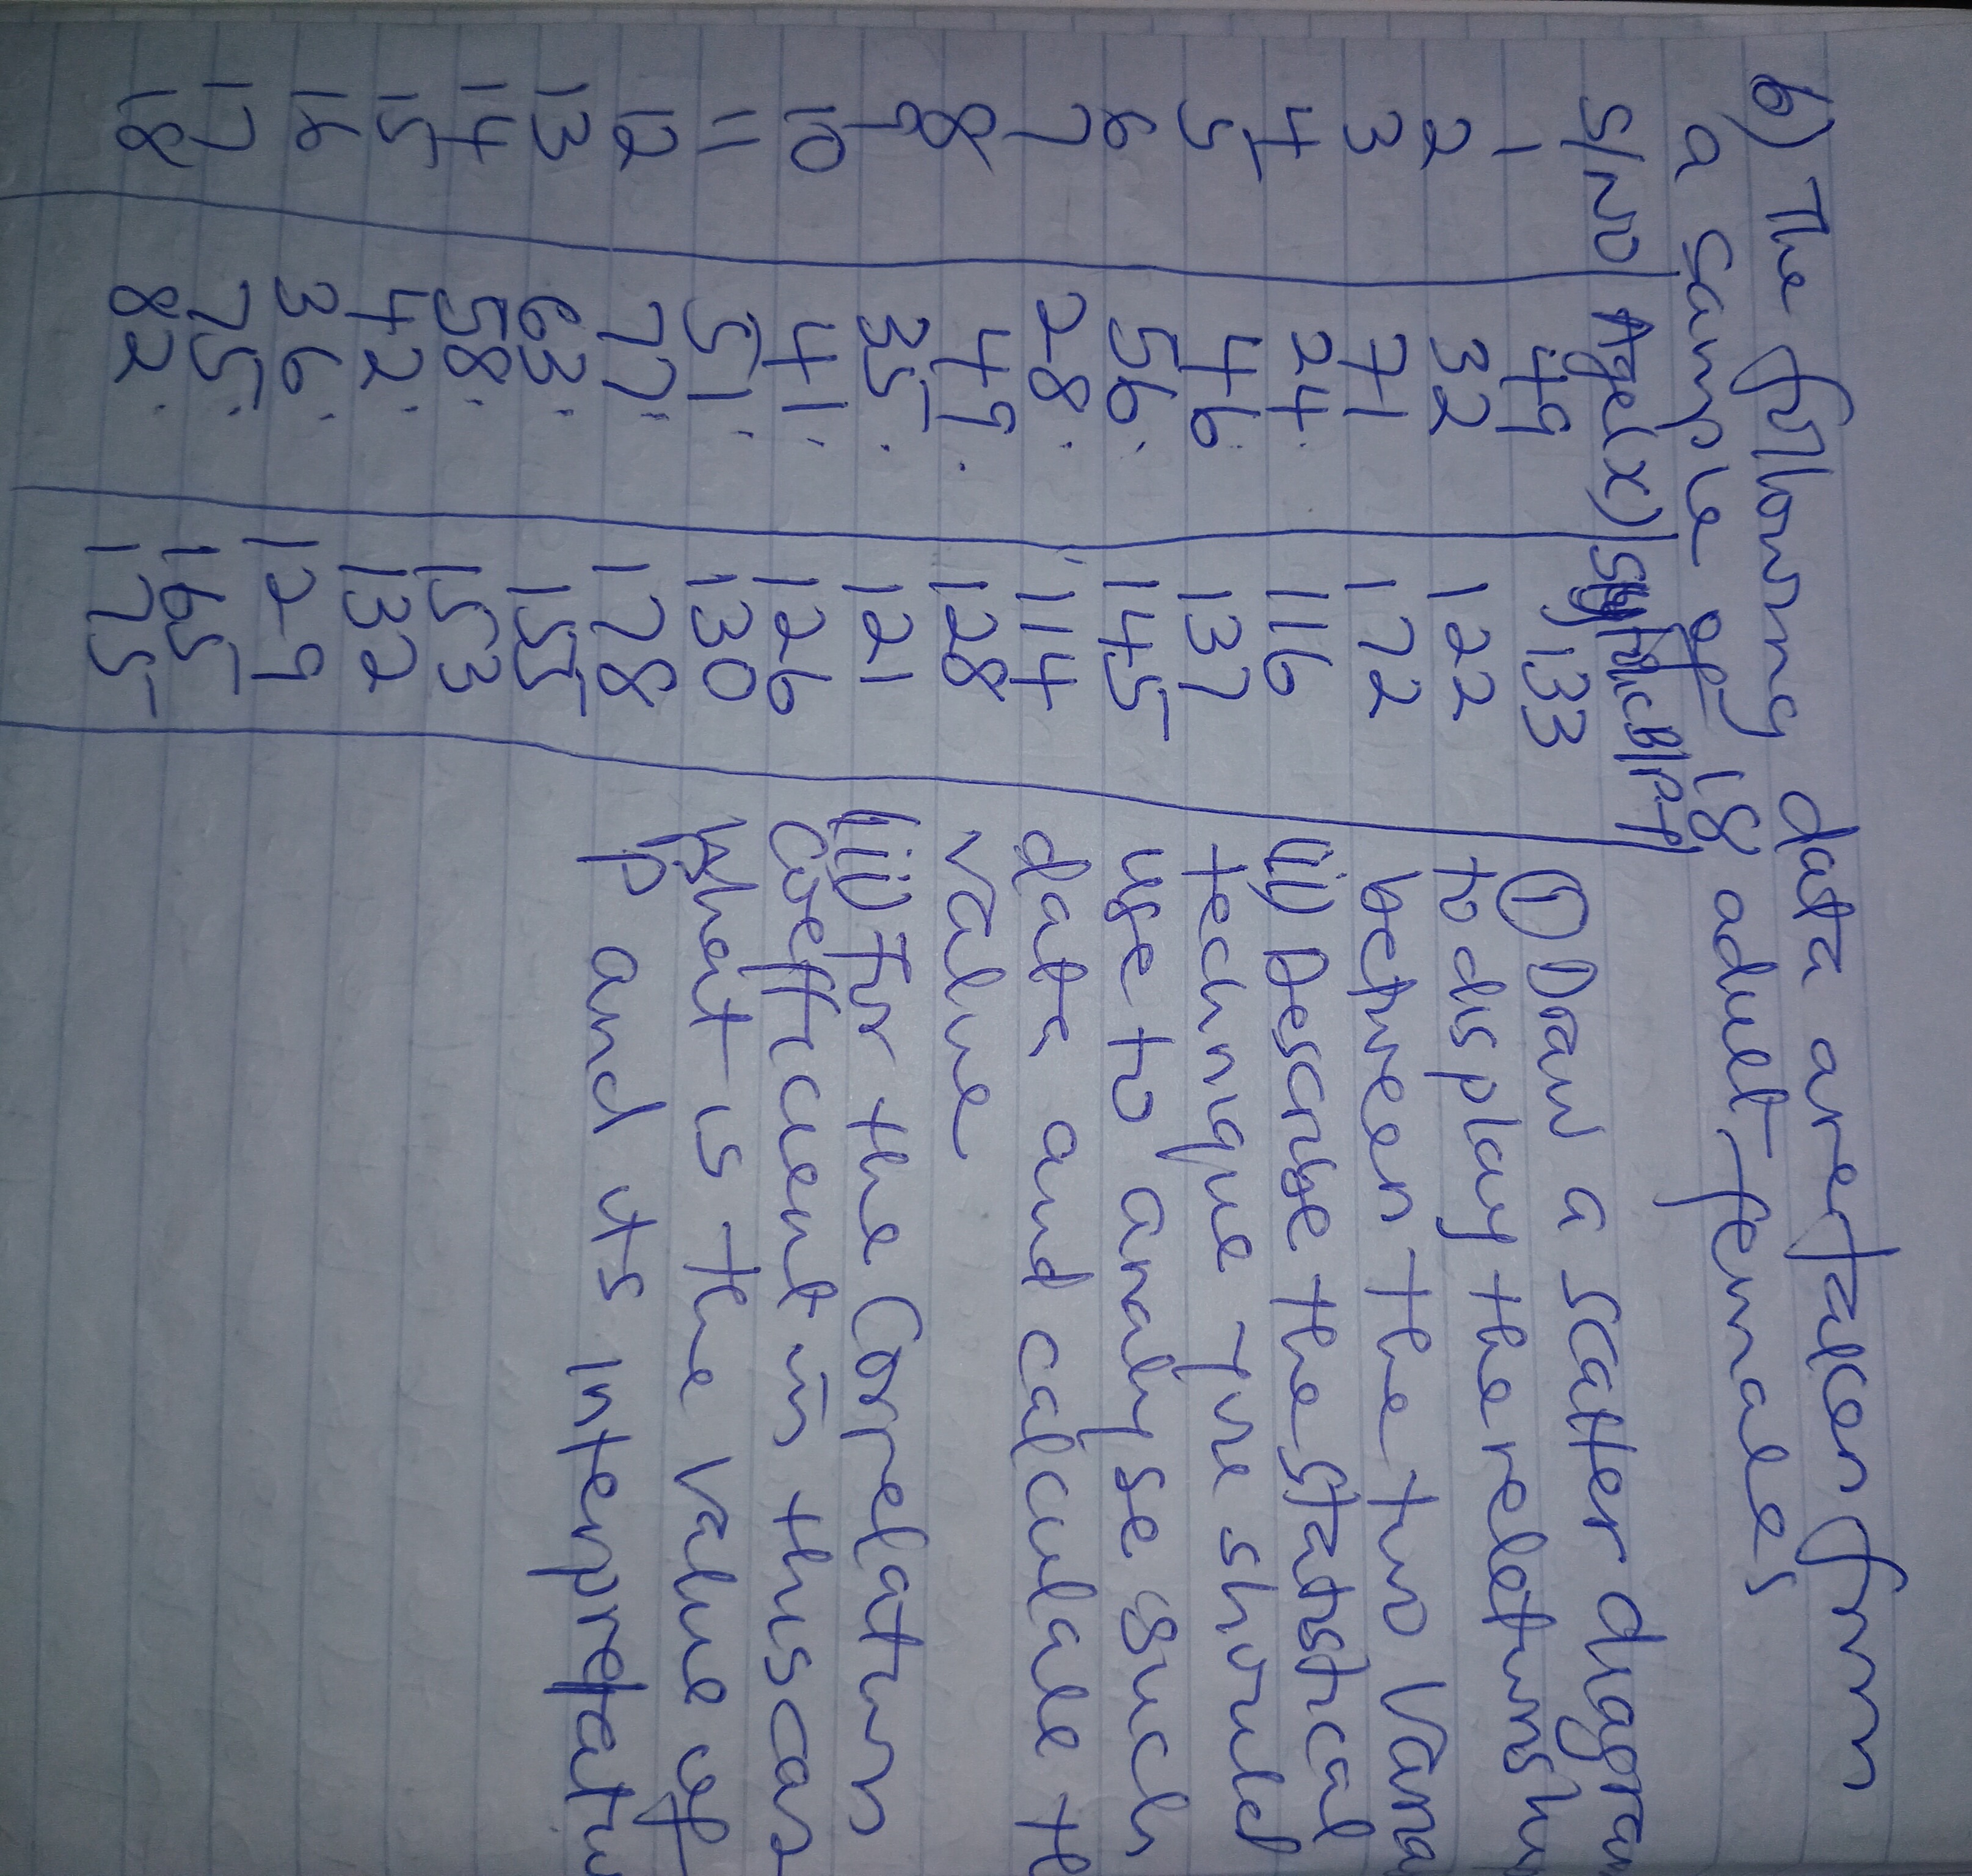 b) The following data are taken from
a sample of 18 adult females
S/NO Age(x) Systolic B/P(Y)
1 49 133
2 32 122
3 71 172
4 24 116
5 46 137
6 56 145
7 28 114
8 49 128
9 35 121
10 41 126
11 51 130
12 77 178
13 63 155
14 58 153
15 42 132
16 36 129
17 75 165
18 82 175
(i) Draw a scatter diagram
to display the relationship
between the two varia
(ii) Describe the statistical
technique you should
use to analyse such
data and calculate th
value
(iii) For the correlation
coefficient in this case
What is the value of
p and its interpretatio